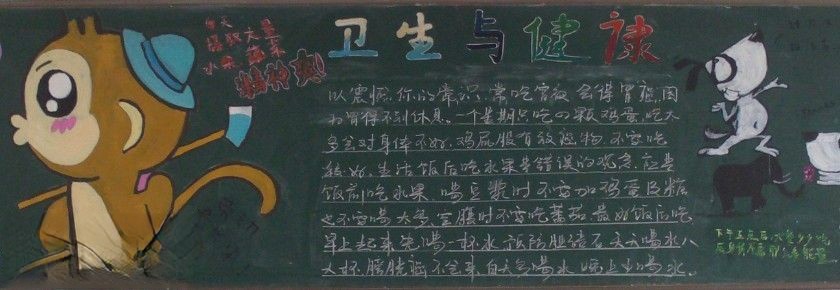 每天
摄取大量
水果,蔬菜
精神爽!
卫生与健康
以震憾你的常识:常吃宵夜,会得胃癌,因
为胃得不到休息,一个星期只吃四颗鸡蛋,吃太
多,对身体不好,鸡屁股有致癌物,不要吃
较好,生活饭后吃水果是错误的观念,应是
饭前吃水果,喝豆浆时不要加鸡蛋及糖
也不要喝太多,空腹时不要吃蕃茄,最好饭后吃
早上起来先喝一杯水,预防胆结石,天天喝水八
大杯,膀胱癌不会来,白天多喝水,晚上少喝水,
下午五点后,大餐少少吃